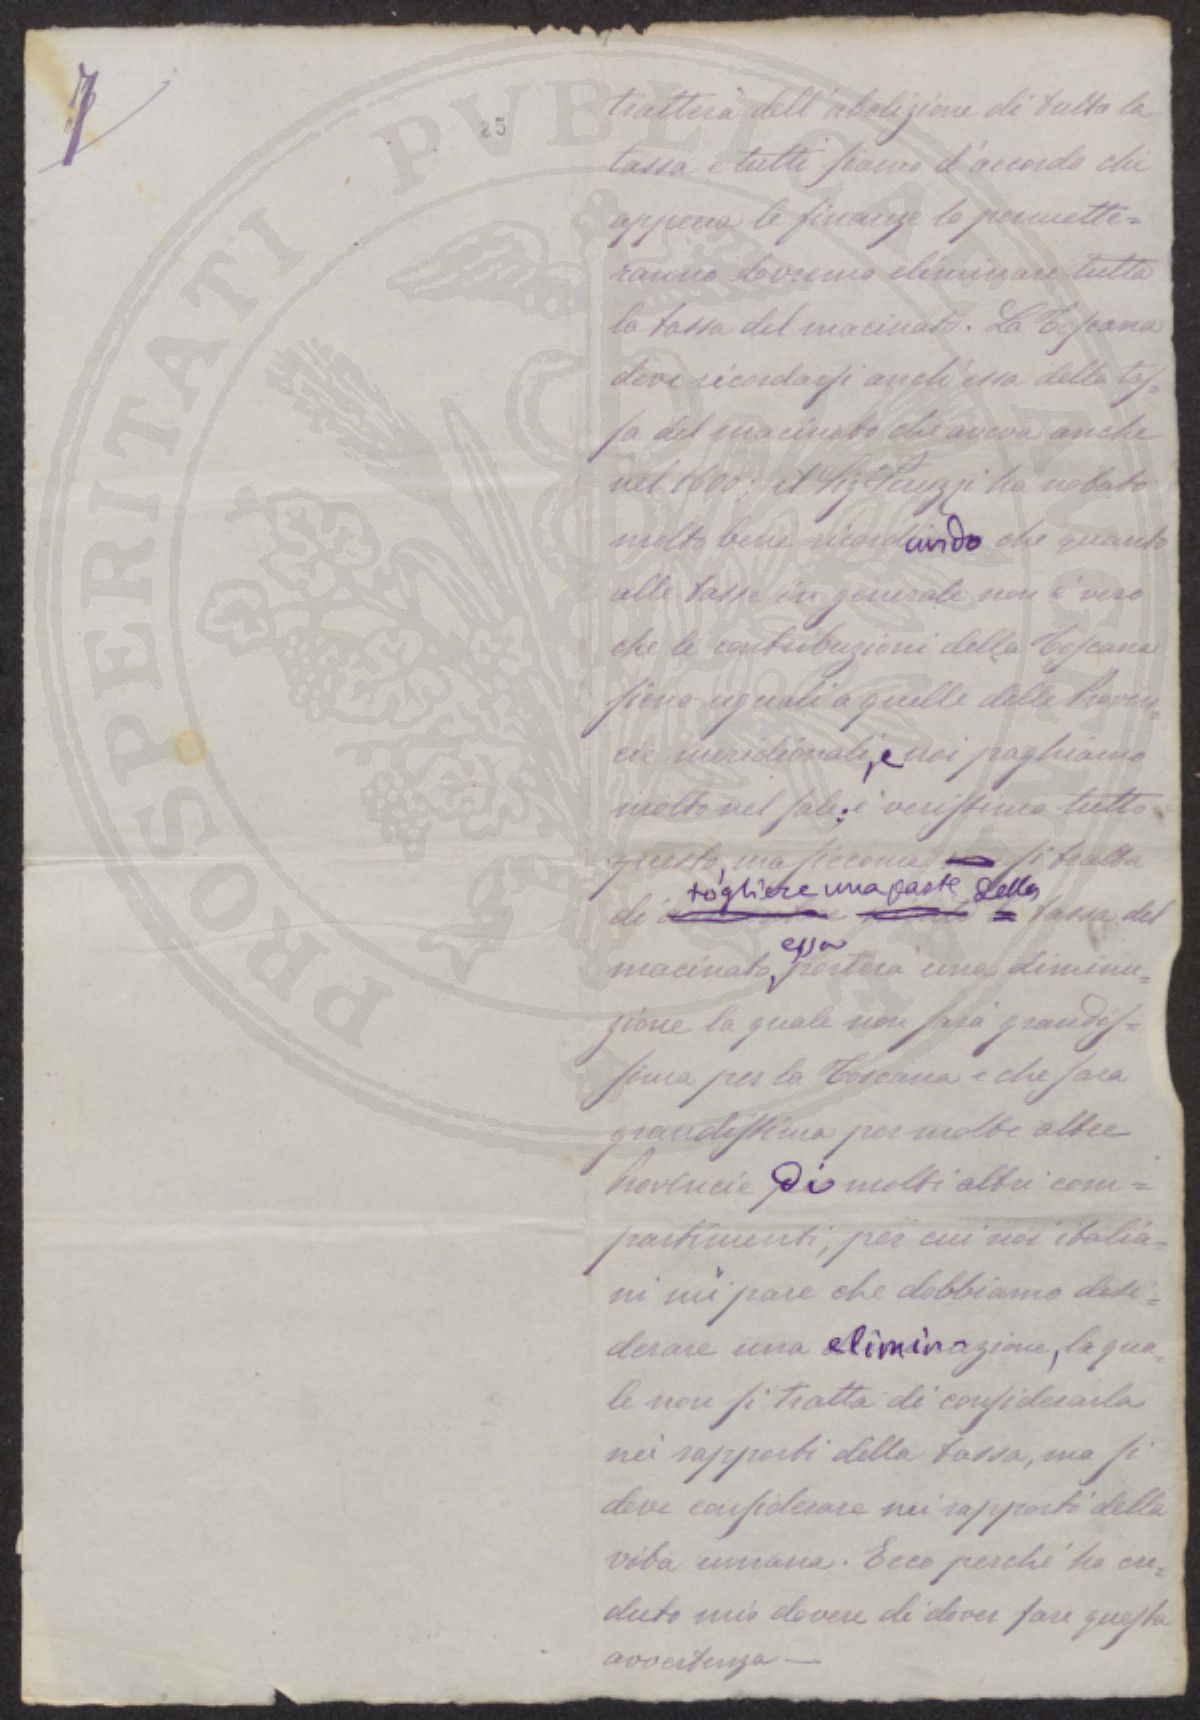 7
25
tratterà dell'abolizione di tutta la
tassa e tutti siamo d'accordo che
appena le finanze lo permette=
ranno dovremo eliminare tutta
la tassa del macinato. La Toscana
deve ricordarsi anch'essa della tas=
sa del macinato che aveva anche
nel 1600; il Sig Peruzzi ha notato
molto bene ricordando che quanto
alle tasse in generale non è vero
che le contribuzioni della Toscana
sieno uguali a quelle delle Provin=
cie meridionali, e noi paghiamo
molto nel sale; è verissimo tutto
questo, ma siccome si tratta
di togliere una parte della tassa del
macinato, essa porterà una diminu=
zione la quale non sarà grandis=
sima per la Toscana e che sara
grandissima per molte altre
Provincie di molti altri com=
partimenti, per cui noi italia=
ni mi pare che dobbiamo desi=
derare una eliminazione, la qua=
le non si tratta di considerarla
nei rapporti della tassa, ma si
deve considerare nei rapporti della
vita umana. Ecco perché ho cre=
duto mio dovere di dover fare questa
avvertenza —
PROSPERITATI PVBLICAE AVGENDAE